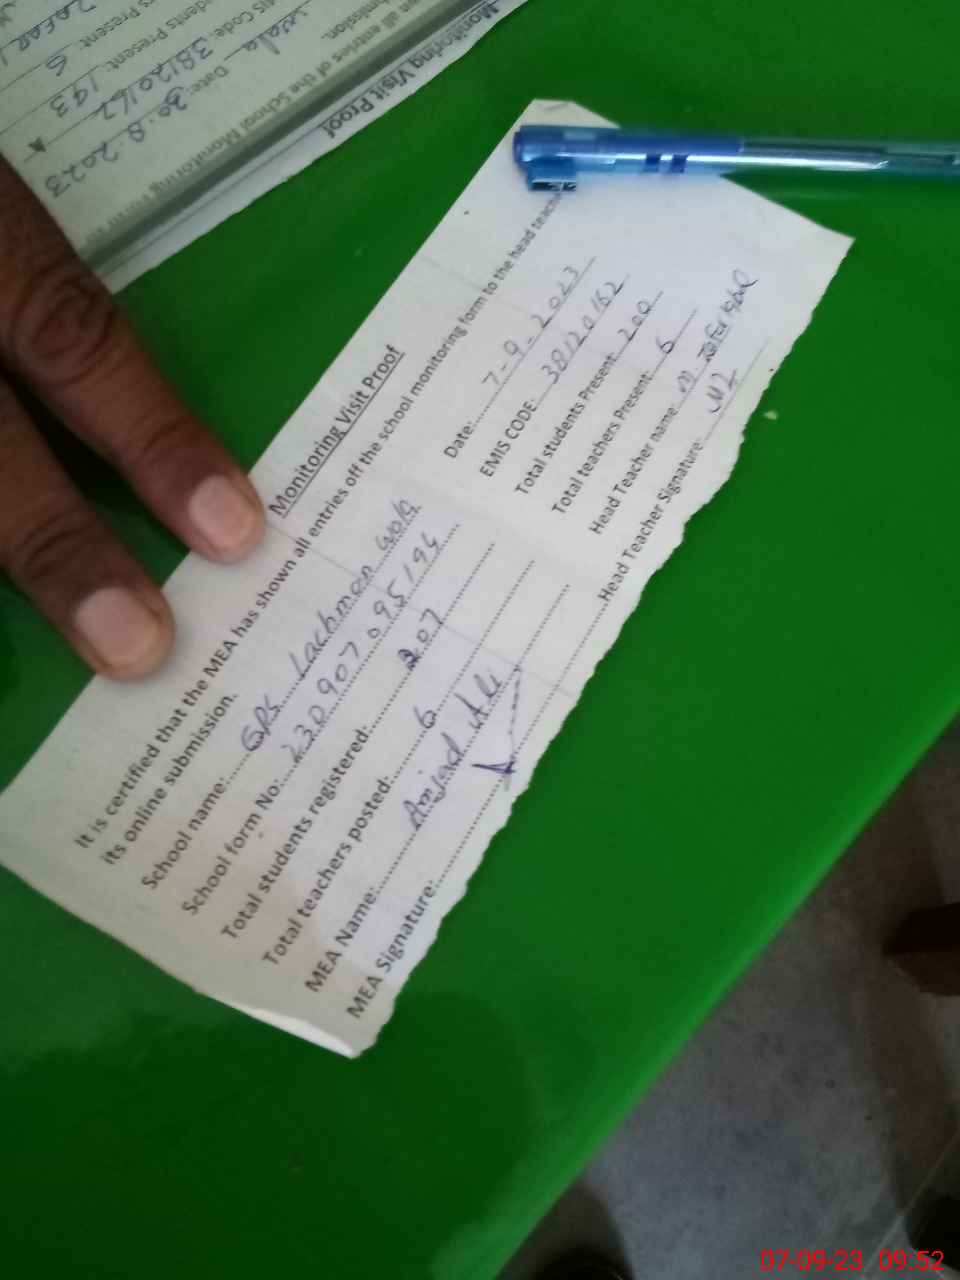 Monitoring Visit Proof
It is certified that the MEA has shown all entries off the school monitoring form to the head teacher
its online submission.
School name: GPS Lachman wala Date: 7-9-2023
School form No: 230907095194 EMIS CODE: 38120162
Total students registered: 207 Total students Present: 200
Total teachers posted: 6 Total teachers Present: 6
MEA Name: Amjad Ali Head Teacher name: M. Zafar Iqbal
MEA Signature: Head Teacher Signature:
Monitoring Visit Proof
all entries of the School Monitoring
submission.
wala Date: 30.8.2023
Code: 38120162
Students Present: 193
Present: 6
07-09-23 09:52